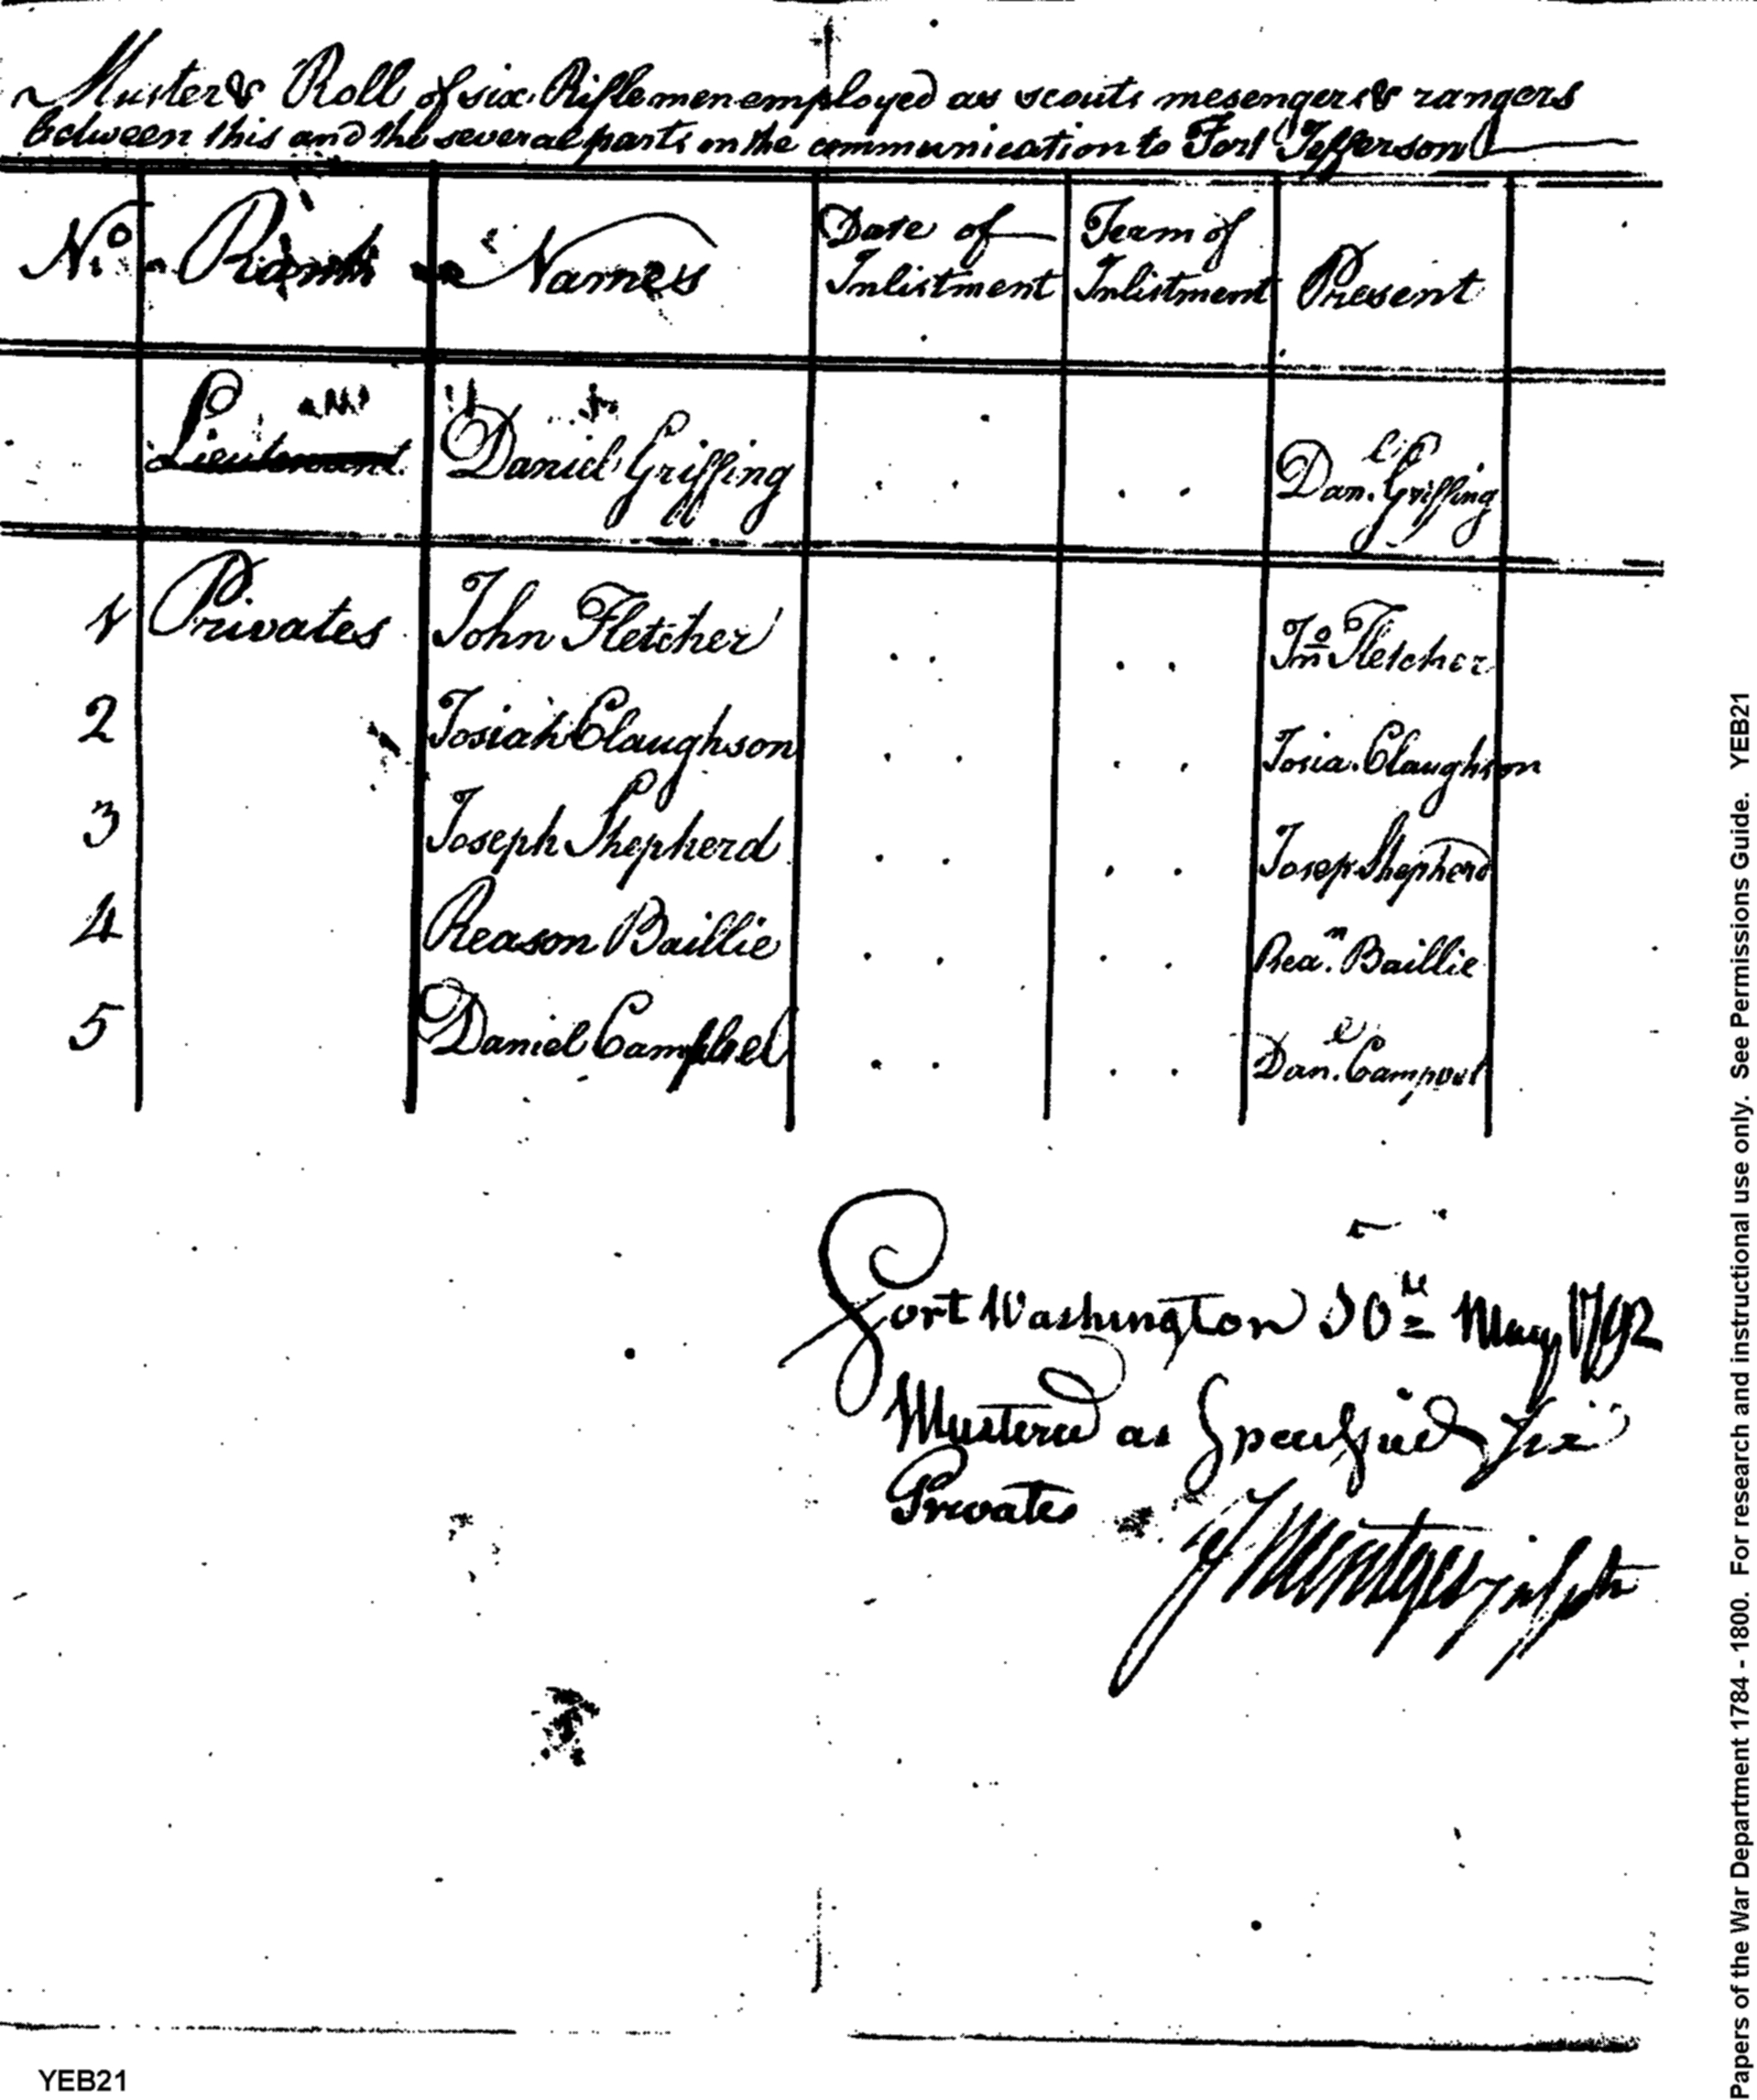 Muster & Roll of six Riflemen employed as scouts mesengers & rangers
between this and the several parts on the communication to Fort Jefferson
No. Rank Names Date of Inlistment Term of Inlistment Present
Lieutenant Daniel Griffing Danl. Griffing
1 Privates John Fletcher Jno Fletcher
2 Josiah Claughson Josia. Claughson
3 Joseph Shepherd Josep Shepherd
4 Reason Baillie Rean. Baillie
5 Daniel Campbel Dane. Campbel
Fort Washington 30th May 1792
Mustered as Specified Six
Privates
YEB21
Papers of the War Department 1784 - 1800. For research and instructional use only. See Permissions Guide. YEB21